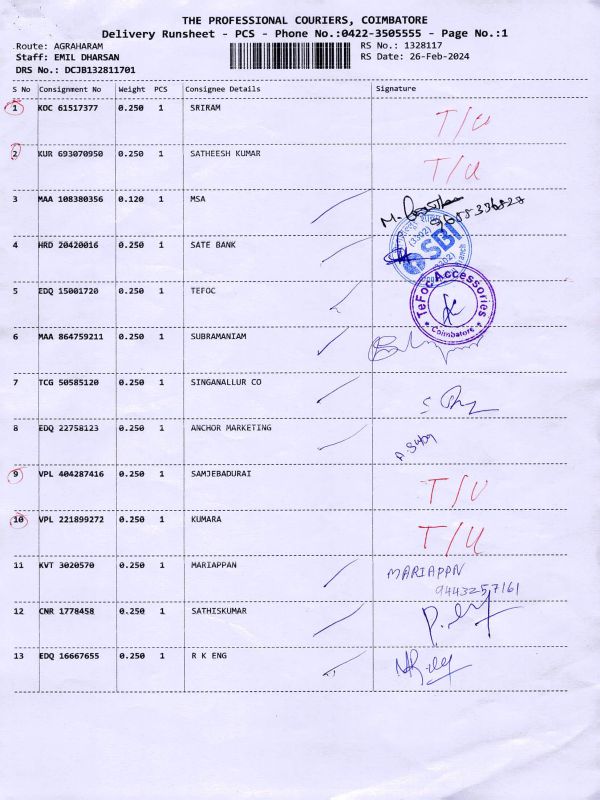 THE PROFESSIONAL COURIERS, COIMBATORE
Delivery Runsheet - PCS - Phone No.:0422-3505555 - Page No.:1
Route: AGRAHARAM RS No.: 1328117
Staff: EMIL DHARSAN RS Date: 26-Feb-2024
DRS No.: DCJB132811701
S No Consignment No Weight PCS Consignee Details Signature
1 KOC 61517377 0.250 1 SRIRAM T/U
2 KUR 693070950 0.250 1 SATHEESH KUMAR T/U
3 MAA 108380356 0.120 1 MSA M.
4 HRD 20420016 0.250 1 SATE BANK SBI
5 EDQ 15001720 0.250 1 TEFOC TeFoc Accessories Coimbatore
6 MAA 864759211 0.250 1 SUBRAMANIAM
7 TCG 50585120 0.250 1 SINGANALLUR CO
8 EDQ 22758123 0.250 1 ANCHOR MARKETING
9 VPL 404287416 0.250 1 SAMJEBADURAI T/U
10 VPL 221899272 0.250 1 KUMARA T/U
11 KVT 3020570 0.250 1 MARIAPPAN MARIAPPN
9443257161
12 CNR 1778458 0.250 1 SATHISKUMAR
13 EDQ 16667655 0.250 1 R K ENG